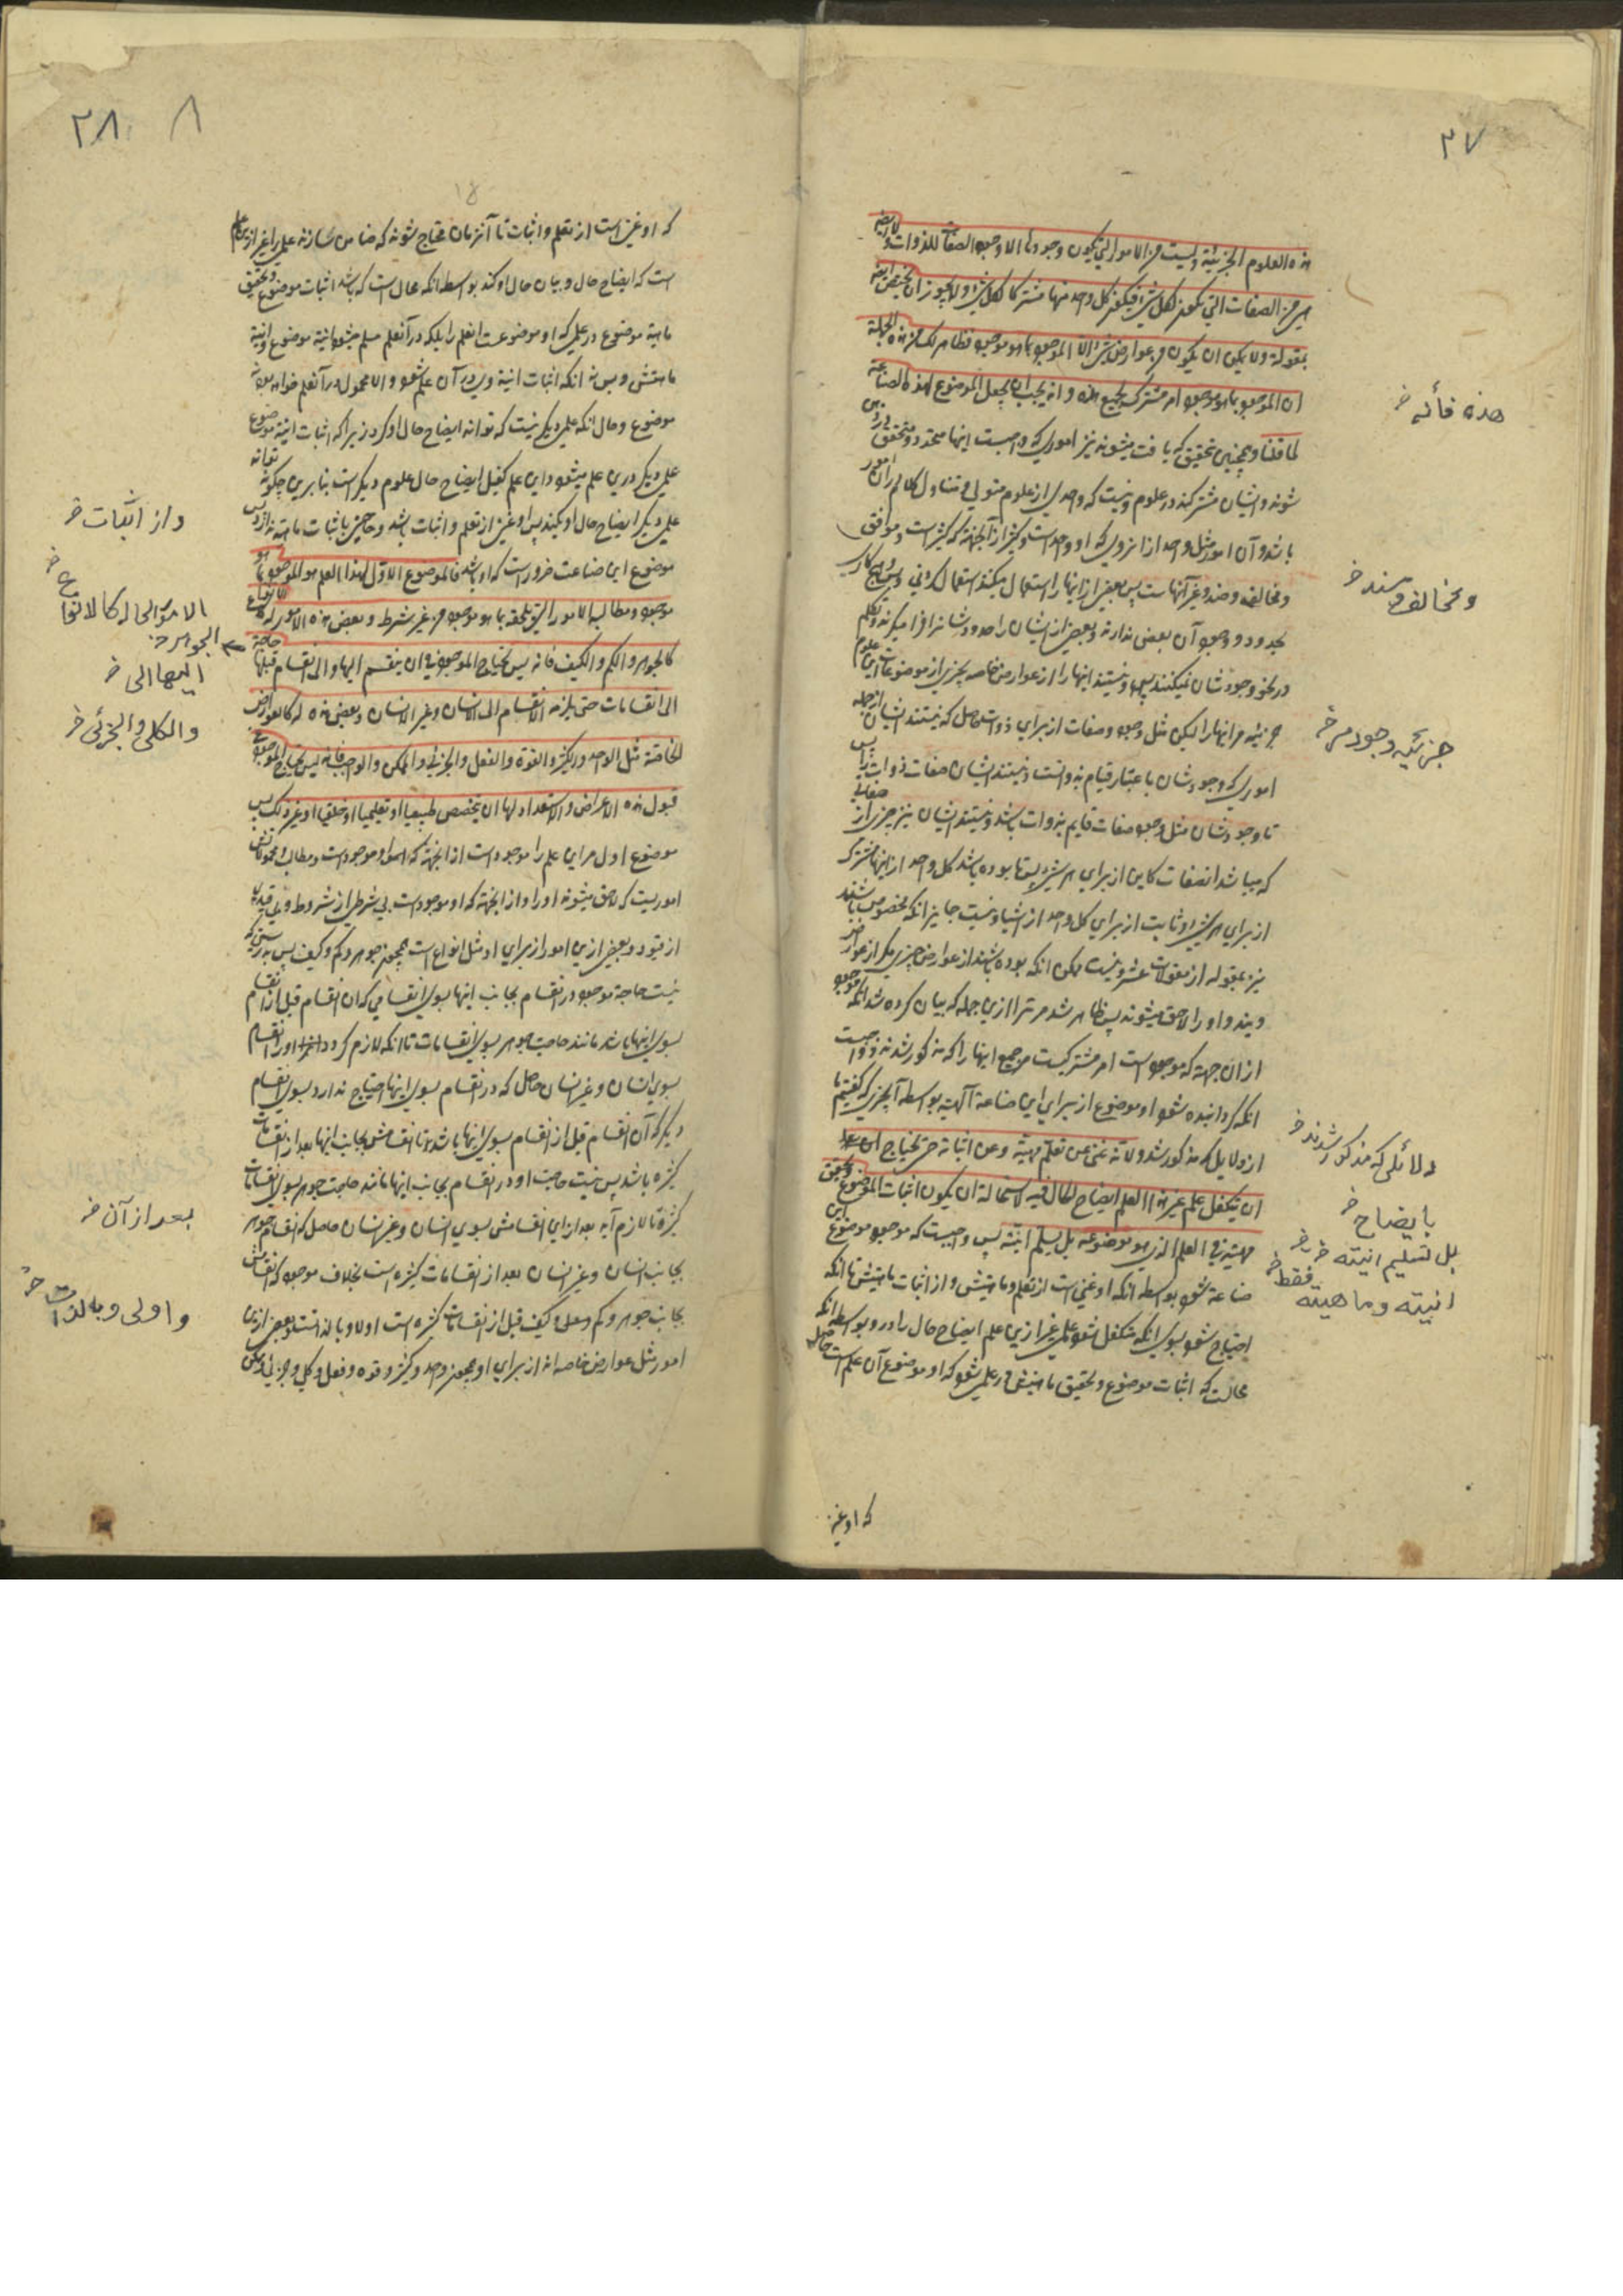 ٢٧
هذه العلوم الجزئية وليست من الامور التي يكون وجودها الا وجود الصفات للذوات ولا ايضه
هي من الصفات التي تكون لكل شئ فيكون كل واحد منها مشتركا لكل شئ ولا يجوز ان يختص ايضه
بمقولة ولا يمكن ان يكون من عوارض شئ الا الموجود بما هو موجود فظاهر لك من هذه الجملة
ان الموجود بما هو موجود امر مشترك لجميع هذه وانه يجب ان يجعل الموضوع لهذه الصناعة
لما قلنا و همچنين تحقيق كه يافت ميشوند نيز اموري كه واجبست اينها متحدد و متحقق
شوند و ايشان مشتركند در علوم و نيست كه واحدي از علوم متولي و متناول كلام در ان امور
باشد و آن امور مثل واحد از انروي كه او واحد است و كثير از آنجهة كه كثير است و موافق
و مخالف و ضد و غير آنهاست پس بعضي از اينها را استعمال ميكنند استعمال كردني و بس
بحدود و وجود آن بعض ندارند و بعضي از ايشان را حدود شانرا فرا ميگيرند و تكلم
در نحو وجود شان نميكنند و نيستند اينها را از عوارض خاصه بچيزي از موضوعات اين علوم
جزئيه مر اينها را ليكن مثل وجود صفات از براي ذوات حاصل كه نيستند ايشان از جمله
اموري كه وجود شان باعتبار قيام بذوات است و نيستند ايشان صفات ذوات پس
تا وجود شان مثل وجود صفات قايم بذوات باشد و نيستند ايشان نيز چيزي از صفاتي
كه ميباشد انصفات كاين از براي هر شئ پس تا بوده باشد كل واحد از اينها مشترك
از براي هر شئ و ثابت از براي كل واحد از اشيا و نيست جايز انكه مخصوص باشند
نيز بمقوله از مقولات عشر و نيست ممكن انكه بوده باشند از عوارض چيزي مگر از عوارض
و بند و او را لاحق ميشوند پس ظاهر شد مر ترا ازين جمله كه بيان كرده شد انكه موجود
از ان جهة كه موجود است امر مشتركيست مر جميع اينها را كه مذكور شدند و واجبست
انكه گردانيده شود او موضوع از براي اين صناعة آلهيه بواسطه آنچيزي كه گفتيم ما
از دلايل كه مذكور شد ولانه غني عن تعلم مهيته وعن اثباته حتى يحتاج الى
ان يتكفل علم غير هذا العلم ايضاح الحال فيه لاستحالة ان يكون اثبات الموضوع وتحقيق
مهيته في العلم الذي هو موضوعه بل يسلم انيته پس واجبست كه موجود موضوع اين
صناعة شود بواسطه انكه او غني است از تعلم و ماهيتش و از اثبات ماهيتش تا انكه
احتياج شود بسوي انكه متكفل شود علمي غير ازين علم ايضاح حال را در او بواسطه انكه
محالست كه اثبات موضوع و تحقيق ماهيتش در علمي شود كه او موضوع آن علم است
كه او غني
هذه فأنه خ
ومخالف و ضد خ
جزئيه وجود مر خ
دلائلى كه مذكور شدند خ
بايضاح خ
بل تسليم انيته خ
فقط خ
انيته وماهيته
٢٨ ٨
كه او غني است از تعلم و اثبات تا آنزمان محتاج شوند كه ضامن سازند علمي را غير ازين علم
است كه ايضاح حال و بيان حال او كند بواسطه انكه محال است كه باشد اثبات موضوع و تحقيق
ماهية موضوع در علمي كه او موضوعست انعلم را بلكه در آنعلم مسلم ميشود انية موضوع و انية
ماهيتش و بس نه انكه اثبات انية وي در آن علم شود و الا محمول در آنعلم خواهد بود نه
موضوع و حال انكه علمي ديگر نيست كه تواند ايضاح حال او كرد زيرا كه اثبات انية موضوع
علمي ديگر درين علم ميشود و اين علم كفيل ايضاح حال علوم ديگر است بنابرين چگونه تواند
علمي ديگر ايضاح حال او كند پس او غني از تعلم و اثبات باشد
موضوع اين صناعت ضرور است كه او باشد فالموضوع الاول لهذا العلم هو الموجود بما هو
موجود و مطالبه الامور التي تلحقه بما هو موجود من غير شرط و بعض هذه الامور له كالانواع
كالجوهر والكم والكيف فانه ليس يحتاج الموجود في ان ينقسم اليها والى انقسام قبلها حاجة
الى انقسامات حتى يلزمه الانقسام الى الانسان وغير الانسان وبعض هذه له كالعوارض
الخاصة مثل الواحد والكثير والقوة والفعل والجزئي والممكن والواجب فانه ليس يحتاج الموجود في
قبول هذه الاعراض والاستعداد لها ان يتخصص طبيعيا او تعليميا او خلقيا او غير ذلك پس
موضوع اول مر اين علم را موجود است از انجهة كه او موجود است و مطالب
اموريست كه لاحق ميشوند او را از انجهة كه او موجود است بي شرطي از شروط و بي قيدي
از قيود و بعضي ازين امور از براي او مثل انواع است همچون جوهر و كم و كيف پس بدرستي كه
نيست حاجة موجود در انقسام بجانب اينها بسوي انقسامي كه ان انقسام قبل از انقسام
بسوي اينها باشد مانند حاجت جوهر بسوي انقسامات تا انكه لازم گردد او را انقسام
بسوي انسان و غير انسان حاصل كه در انقسام بسوي اينها احتياج ندارد بسوي انقسام
ديگر كه آن انقسام قبل از انقسام بسوي اينها باشد تا انقسامش بجانب اينها بعد از انقسامات
كثيره باشد پس نيست حاجت او در انقسام بجانب اينها مانند حاجت جوهر بسوي انقسامات
كثيره تا لازم آيد بعد از اين انقسامش بسوي انسان و غير انسان حاصل كه انقسام جوهر
بجانب انسان و غير انسان بعد از انقسامات كثيره است بخلاف موجود كه انقسامش
بجانب جوهر و كم و كيف قبل از انقسامات كثيره است اولا و بالذات و بعضي ازين
امور مثل عوارض خاصه اند از براي او همچون واحد و كثير و قوه و فعل و كلي و جزئي و ممكن
و از اثبات خ
الامور الحاله كالانواع خ
الجوهر خ
اليها الى خ
والكلى والجزئى خ
بعد از آن خ
و اولى و بالذات خ